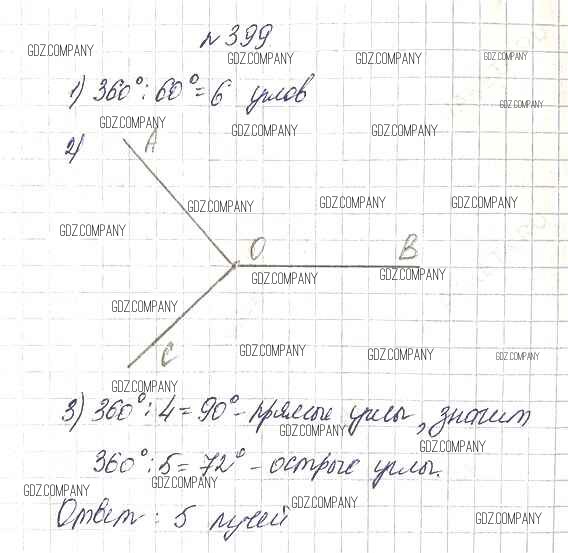 №399
GDZ.COMPANY GDZ.COMPANY GDZ.COMPANY GDZ.COMPANY
1) 360°:60°=6 углов GDZ.COMPANY
GDZ.COMPANY GDZ.COMPANY GDZ.COMPANY
2) A
GDZ.COMPANY GDZ.COMPANY GDZ.COMPANY
GDZ.COMPANY
O B
GDZ.COMPANY GDZ.COMPANY
GDZ.COMPANY
C GDZ.COMPANY GDZ.COMPANY GDZ.COMPANY
GDZ.COMPANY
3) 360°:4=90°- прямые углы, значит
GDZ.COMPANY GDZ.COMPANY
360°:5=72° - острые углы.
GDZ.COMPANY GDZ.COMPANY GDZ.COMPANY
Ответ: 5 лучей
GDZ.COMPANY